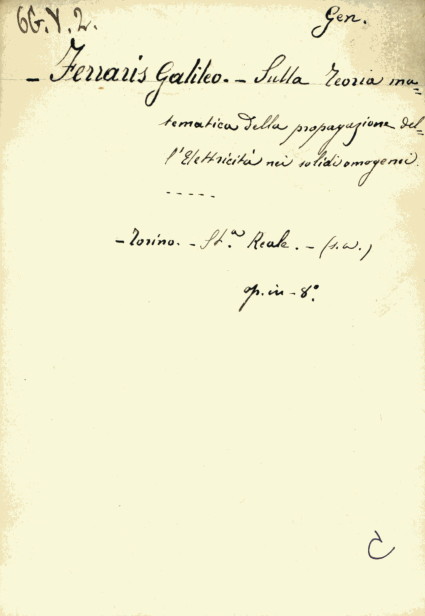 66.V.2.
Gen.
- Ferraris Galileo. - Sulla Teoria ma=
tematica della propagazione del=
l'Elettricità nei solidi omogenei.
-----
- Torino. - St.ª Reale. - (s.a.)
op. in - 8°.
C